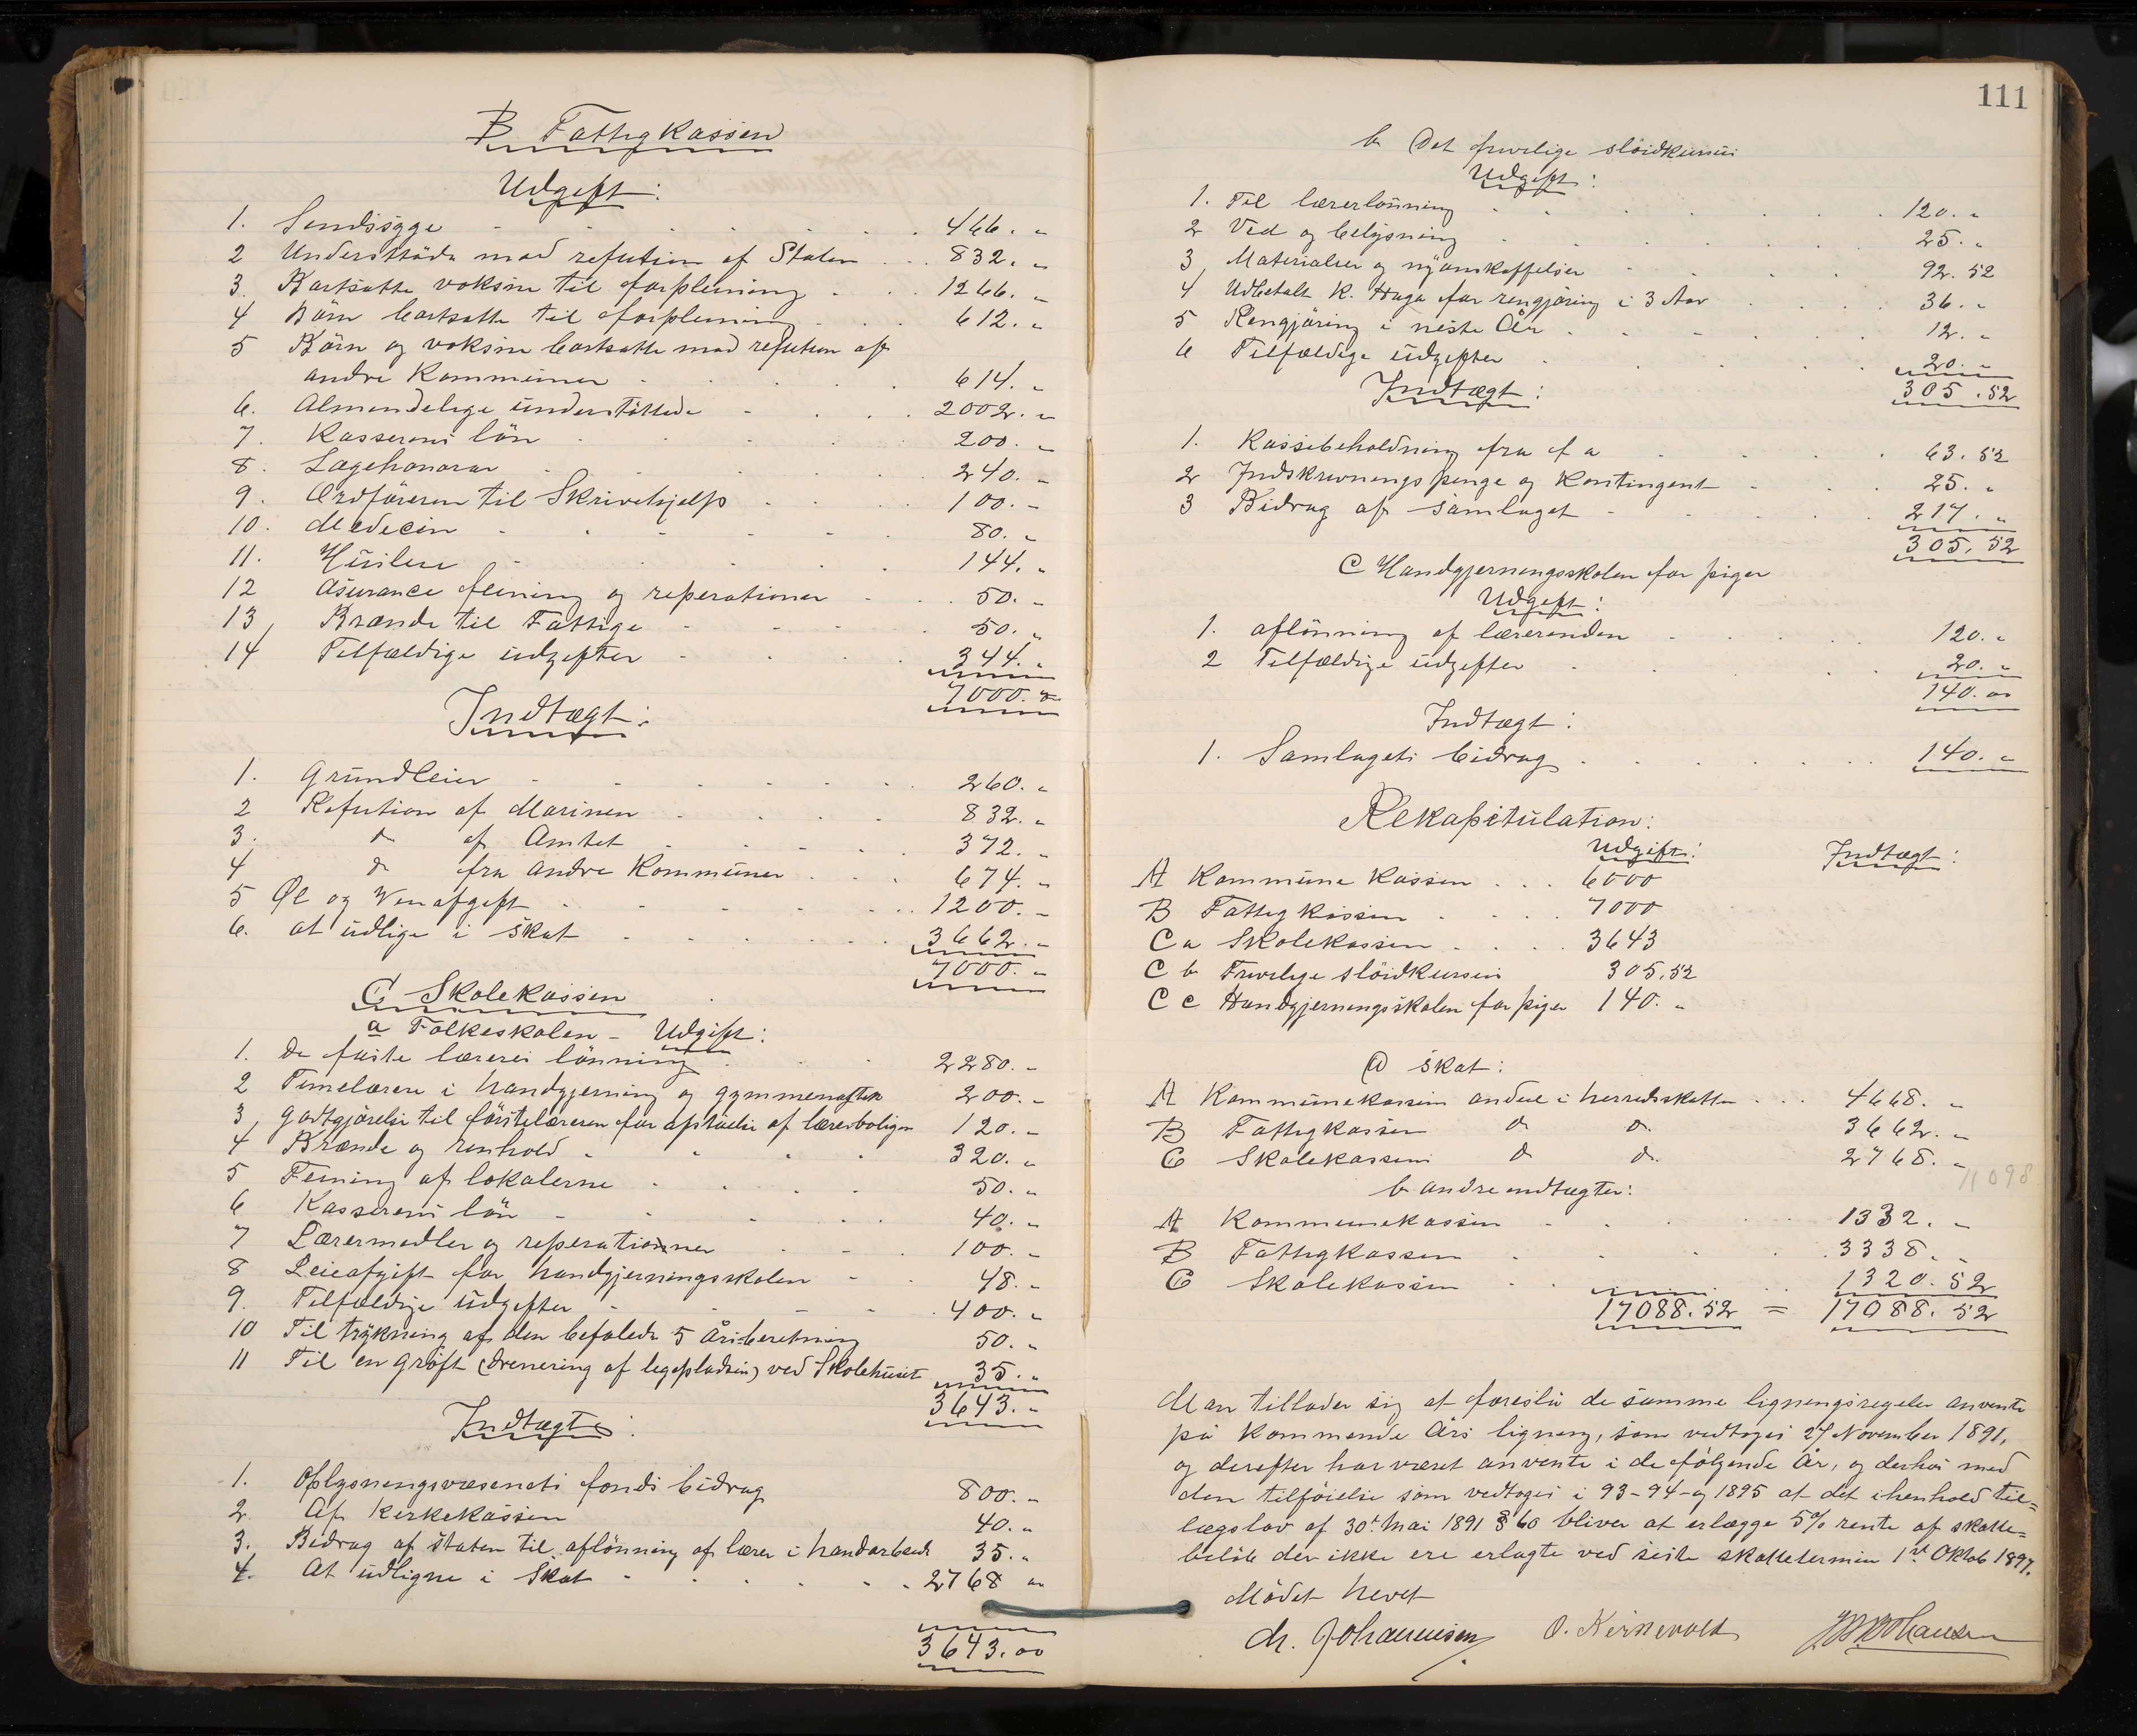 B. Fattigkassen
Udgift:
1. Sindssyge 466. „
2 Understøtede mod refution af Staten 832. „
3. Bortsatte voksne til forpleining 1266. „
4 Börn bortsatte til forpleining 612. „
5 Börn og voksne bortsatte mod refution af
andre Kommuner 614. „
6. Almendelige understöttede 2002. „
7. Kasserens lön 200. „
8. Lægehonorar 240. „
9. Ordföreren til Skrivehjelp 100. „
10. Medecin 80. „
11. Husleie 144. „
12 Asurance feining og reperationer 50. „
13 Brænde til Fattige 50. „
14 Tilfældige udgifter 344. „
7000. „
Indtægt:
1. Grundleier 260. „
2 Refution af Marinen 832. „
3. do af Amtet 372. „
4 do fra andre Kommuner 674. „
5 Øl og Vinafgift 1200. „
6. at udlige i skat 3662. „
7000. „
C Skolekassen
a Folkeskolen – Udgift:
1. De faste læreres lönning 2280. „
2 Timelærere i handgjerning og gymmenastik 200. „
3 godtgjörelse til förstelæreren for afståelse af lærerboligen 120. „
4 Brænde og renhold 320. „
5 Feining af lokalerne 50. „
6 Kasserens lön 40. „
7 Lærermedler og reperationner 100. „
8 Leieafgift for handgjerningsskolen 48. „
9. Tilfældige udgifter 400. „
10 Til trykning af den befalede 5 årsberetning 50. „
11 Til en gröft (drenering af legepladsen) ved Skolehuset 35. „
3643. „
Indtægt:
1. Oplysningsvæsenets fonds bidrag 800. „
2. Af Kirkekassen 40. „
3. Bidrag af staten til aflönning af lærer i handarbeide 35. „
4. At udligne i Skat 2768 „
3643.00
111
b Det frivilige slöidkursus
Udgift:
1. Til lærerlönning 120. „
2 Ved og belysning 25. „
3 Materialier og nyanskaffelser 92. 52
4 Udbetalt K. Haga for rengjöring i 3 Aar 36. „
5 Rengjöring i neste År 12. „
6 Tilfældige udgifter 20. „
305.52
Indtægt:
1. Kassebeholdning fra f a 63. 52
2 Indskrivnings penge og Kontingent 25. „
3 Bidrag af samlaget 217. „
305. 52
C Handgjerningsskolen for piger
Udgift:
1. aflönning af lærerinden 120. „
2 Tilfældige udgifter 20. „
140. 00
Indtægt:
1. Samlagets bidrag 140. „
Rekapitulation:
Udgift: Indtægt:
A Kommune Kassen 6000
B Fattigkassen 7000
C a Skolekassen 3643
C b Frivilige slöidkursus 305.52
C c Handgjerningsskolen for piger 140. „
a skat:
A Kommunekassens andel i herredsskatten 4668. „
B Fattigkassen do do. 3662. „
C Skolekassens do do. 2768. „
11098
b andre indtægter:
A Kommunekassen 1332. „
B Fattigkassen 3338. „
C Skolekassen 1320. 52
17088.52 = 17088. 52
Man tillader sig at foreslå de samme ligningsregeler anvente
på Kommende Års ligning, som vedtoges 27 November 1891,
og derefter har været anvente i de fölgende År, og derhos med
den tilföielse som vedtoges i 93-94-og 1895 at det ihenhold til=
lægslov af 30t Mai 1891 § 60 bliver at erlægge 5% rente af skatte=
belöb der ikke ere erlagte ved siste skattetermin 1st Oktob 1897.
Mödet hevet
M. Johannesen O. Kirkevold